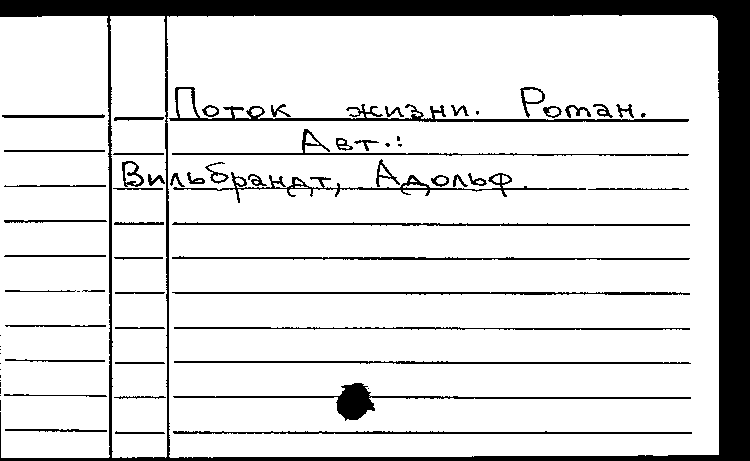 Поток жизни. Роман.
Авт.:
Вильбрандт, Адольф.